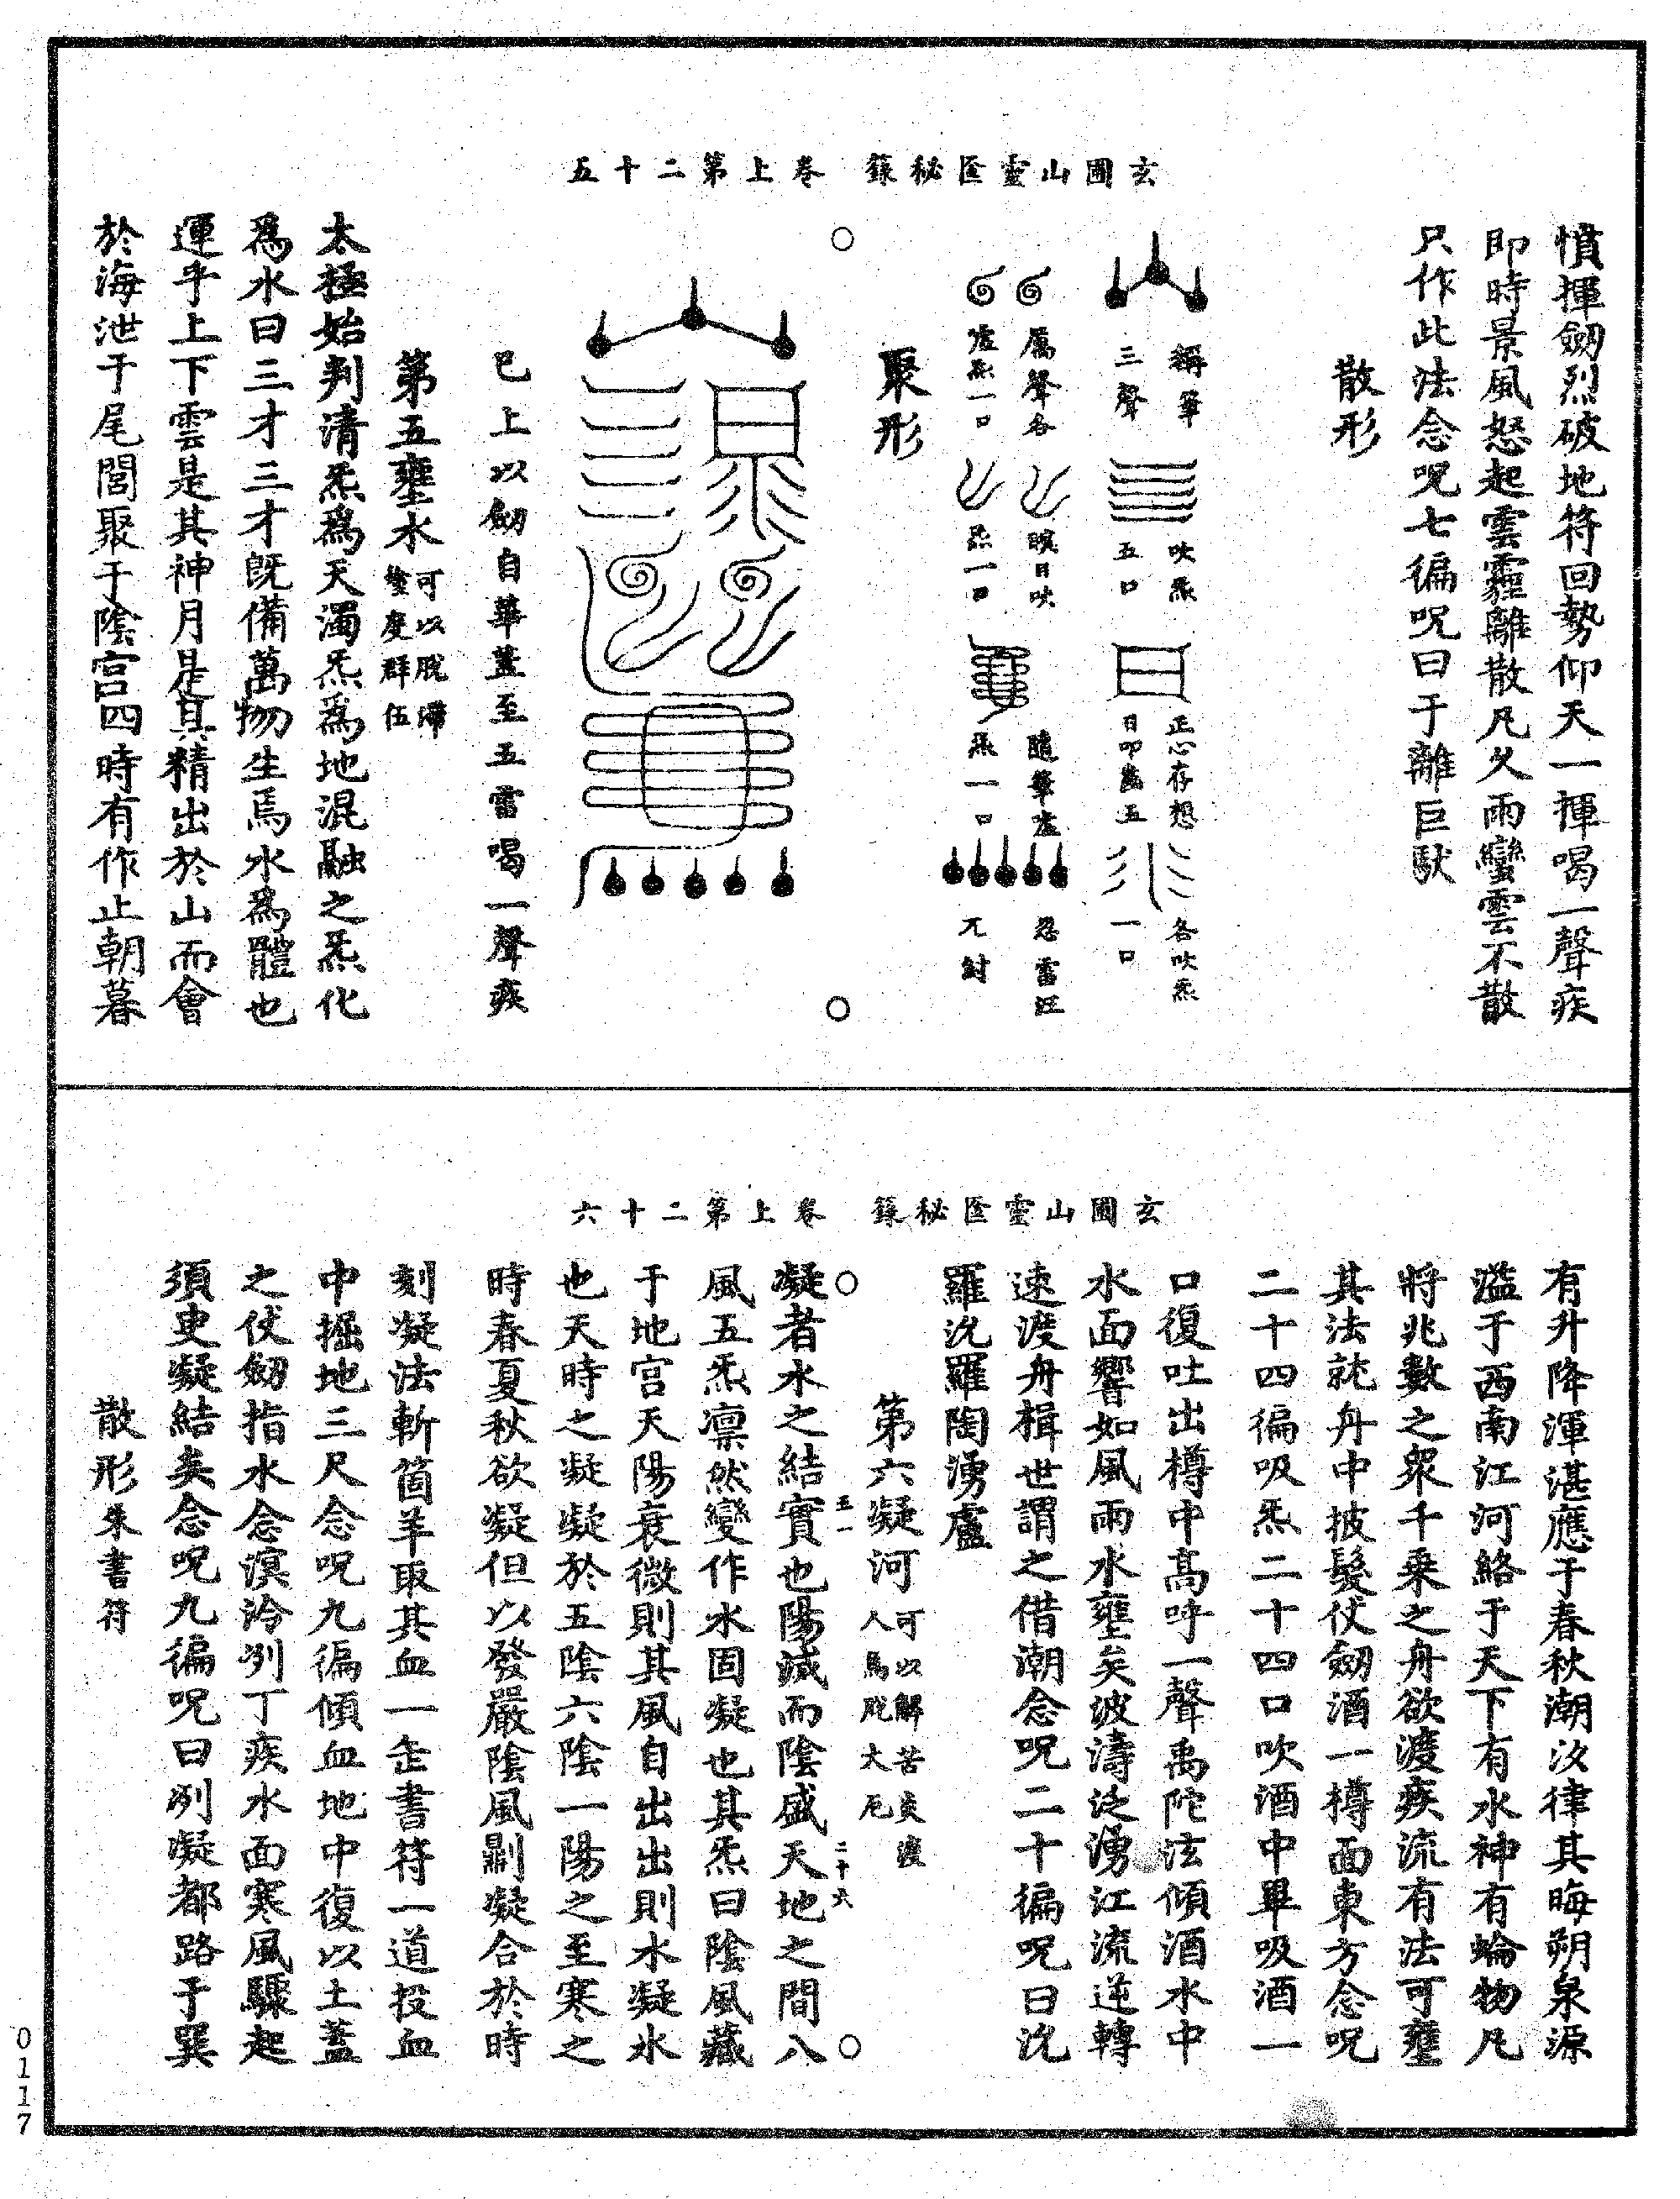 玄圃山靈匧秘籙　卷上第二十五
憤揮劒烈破地符回勢仰天一揮喝一聲疾
即時景風怒起雲霾離散凡久雨蠻雲不散
只作此法念呪七徧呪曰于離巨馱
散形
稱筆
三聲
吹炁
五口
正心存想
日叩齒五
各吹炁
一口
厲聲各
炁一口
瞑目吹
炁一口
隨筆
炁一口
忍雷
聚形
已上以劒自華蓋至五雷喝一聲疾
第五壅水
可以脫
度群伍
太極始判清炁爲天濁炁爲地混融之炁化
爲水曰三才三才旣備萬物生焉水爲體也
運乎上下雲是其神月是其精出於山而會
於海泄于尾閭聚于陰宮四時有作止朝暮
玄圃山靈匧秘籙　卷上第二十六
有升降渾湛應于春秋潮汐律其晦朔泉源
溢于西南江河絡于天下有水神有蜦物凡
將兆數之衆千乘之舟欲渡疾流有法可壅
其法就舟中披髮仗劒酒一樽面東方念呪
二十四徧吸炁二十四口吹酒中畢吸酒一
口復吐出樽中高呼一聲禹陀泫傾酒水中
水面響如風雨水壅矣波濤泛湧江流逆轉
速渡舟楫世謂之借潮念呪二十徧呪曰沇
羅沇羅陶湧盧
第六凝河
可以解苦炎渡
人馬脫大厄
凝者水之結實也陽減而陰盛天地之間八
五一
二十六
風五炁凛然變作水固凝也其炁曰陰風藏
于地宮天陽衰微則其風自出出則水凝氷
也天時之凝凝於五陰六陰一陽之至寒之
時春夏秋欲凝但以發嚴陰風劘凝合於時
刻凝法斬箇羊取其血一缶書符一道投血
中掘地三尺念呪九徧傾血地中復以土蓋
之仗劒指水念溟泠冽丁疾水面寒風驟起
須臾凝結矣念呪九徧呪曰冽凝都路于巽
散形朱書符
0117